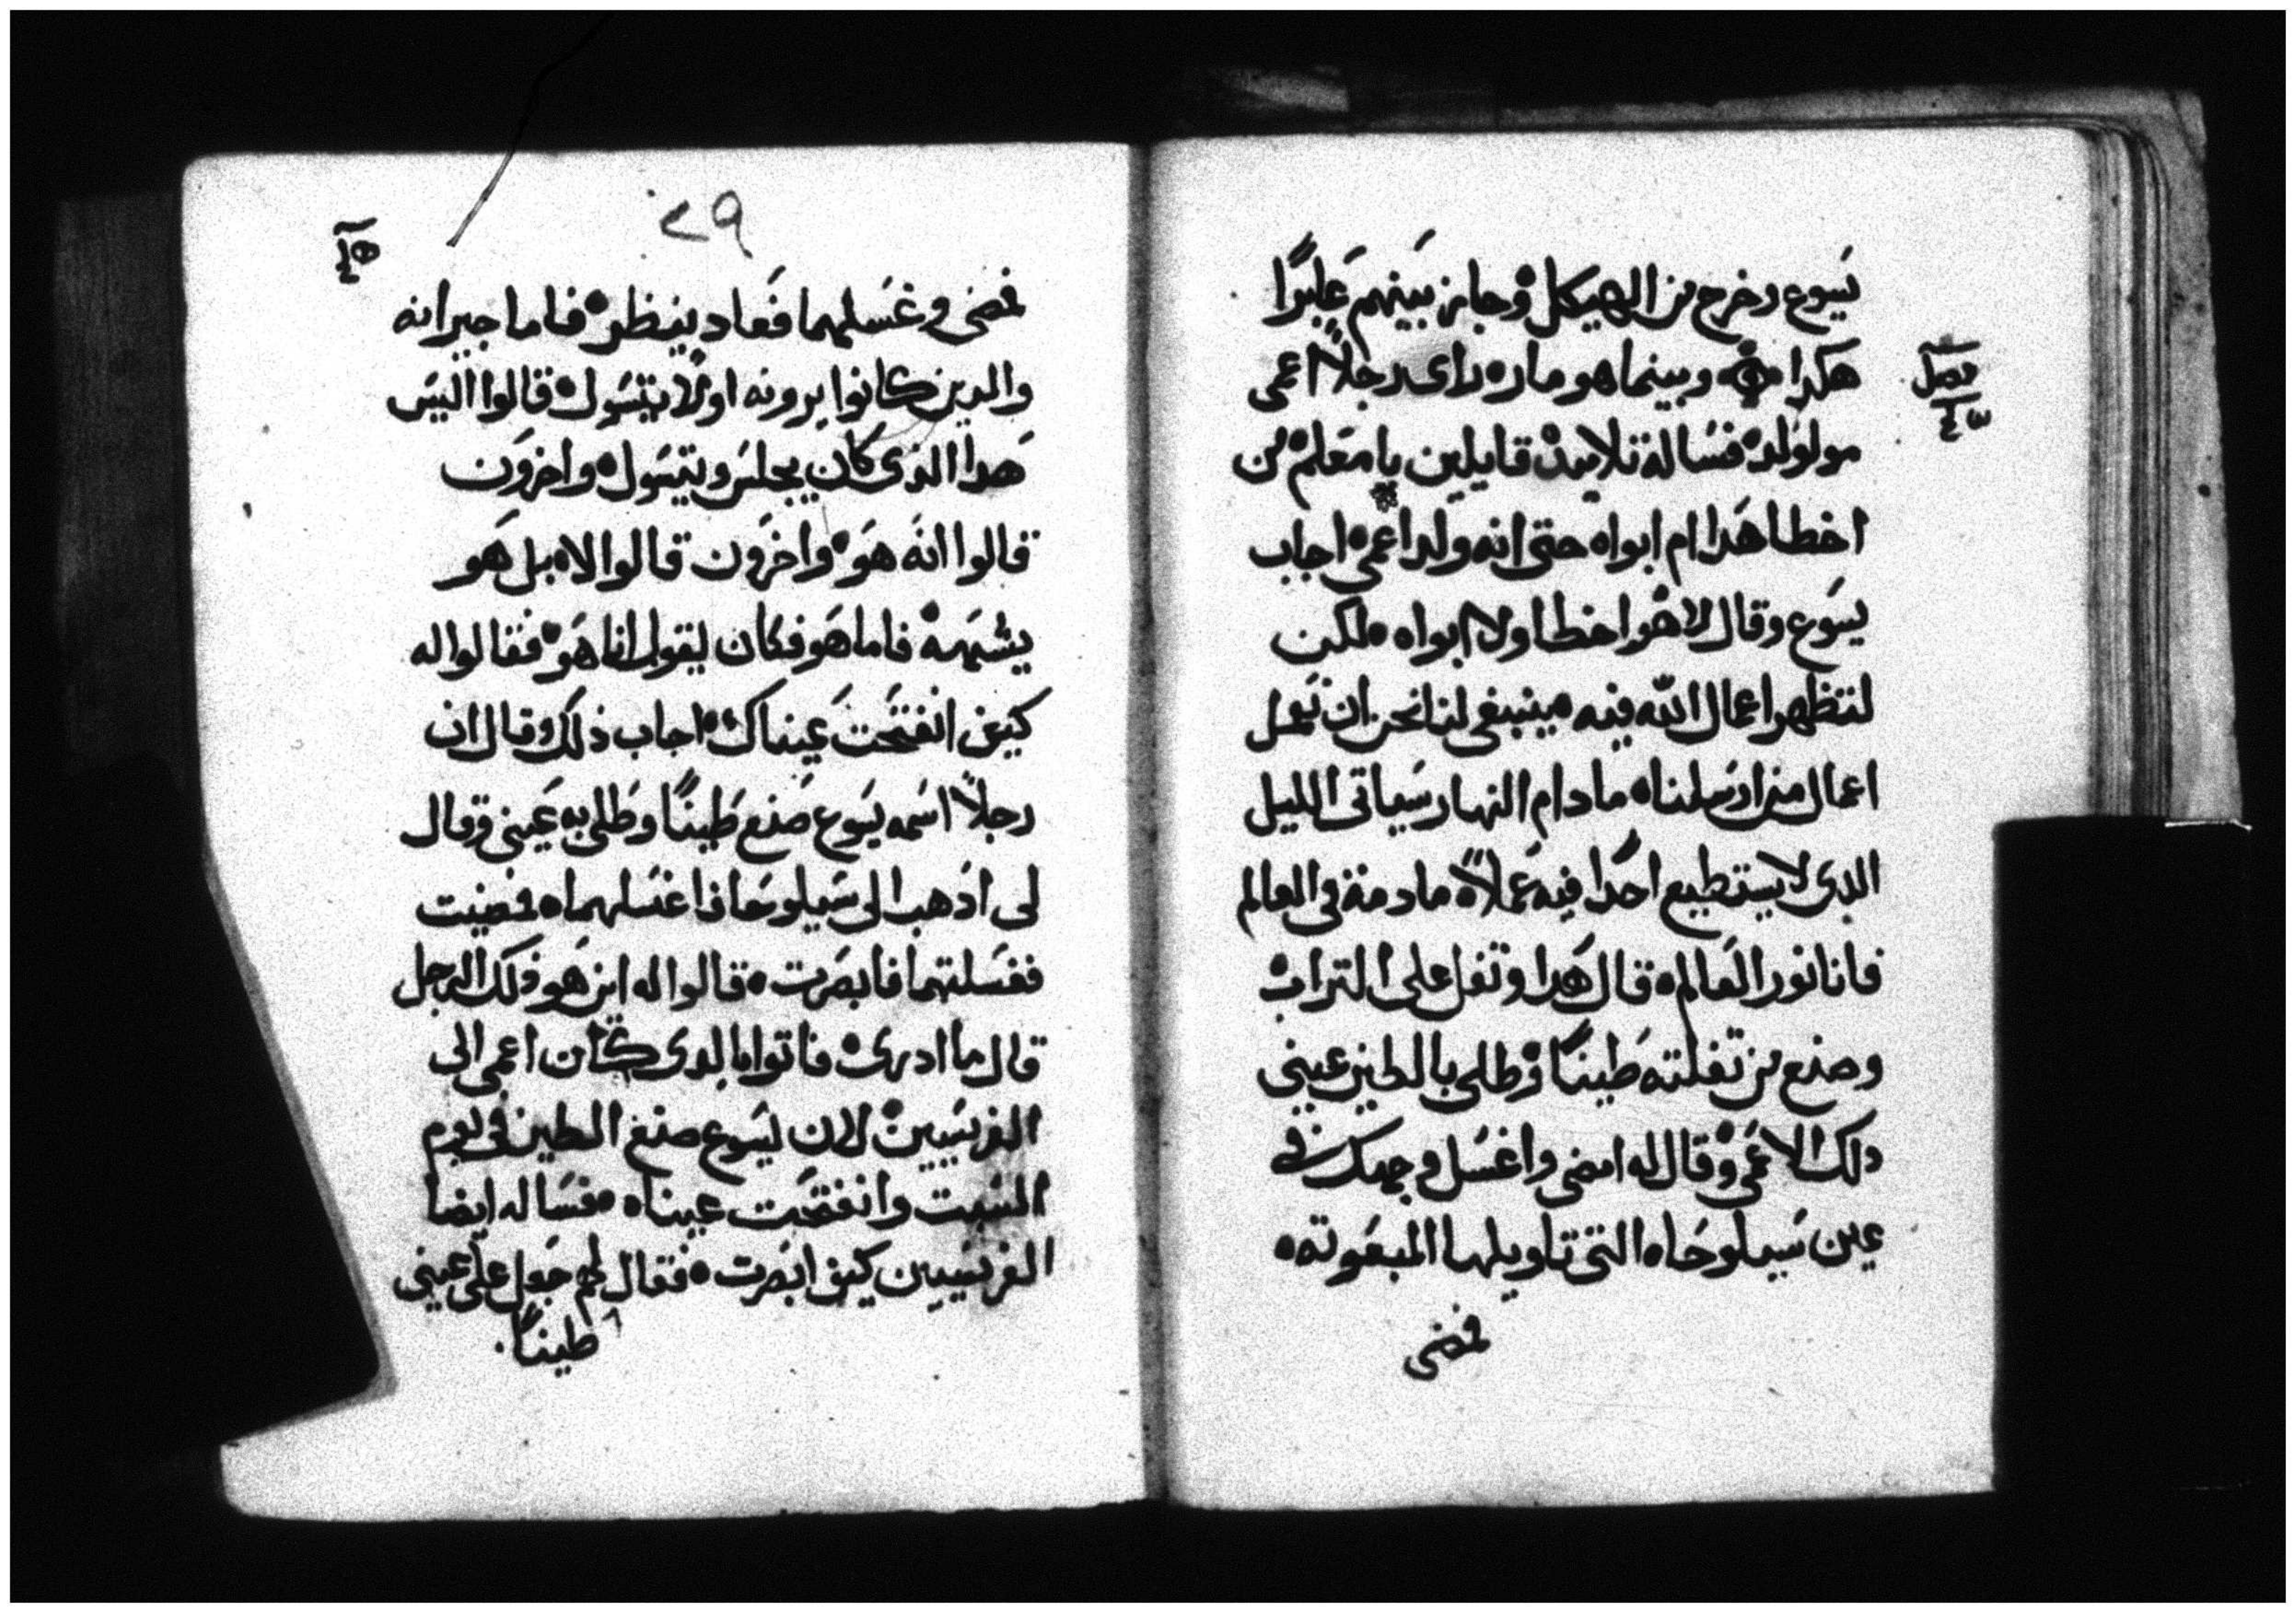 يسوع وخرج من الهيكل وجاز بينهم عابرًا
هكدا وبينما هو ماره راى رجلاً اعمى
فصل
مولودَ فسَاله تلاميدَه قايلين يا معَلم من
اخطا هَدا ام ابواه حتى انه ولد اعمى اجاب
يسَوع وقال لا هو اخطا ولا ابواه لكن
لتظهر اعمال الله فيه ينبغى لنا نحن ان نعمل
اعمال من ارسَلنا ما دام النهار سَياتى الليل
الدى لا يستطيع احدًا فيه عَملاً ما دمت فى العالم
فانا نور العَالم قال هَدا وتفل على التراب
وصنع من تفلته طَينًا وطلى بالطين عينى
دلك الاعَمى وقال له امضى واغسَل وجهك فى
عين سَيلوحَا التى تاويلها المبعَوته
فمضى
٢٩
فمضى وغسَلهما فعَاد ينظر فاما جيرانه
والدين كانوا يرونه اولًا يتسَول قالوا اليسَ
هَدا الذى كان يجلسَ ويتسَول واخرَون
قالوا انَه هَو واخرَون قالوا لا بل هَو
يشبهَه فاما هَو فكان يقول انا هَو فقَالوا له
كيف انفتحَت عَيناك اجاب ذلك وقال ان
رجلاً اسَمه يَسَوع صَنع طَينًا وطَلى به عَينى وقال
لى اذَهب الى سَيلوحَا فاغسَلهما فمضيت
فغسَلتهما فابصَرت قالوا له اين هَو ذلك الرجل
قال ما ادرى فاتوا بالدى كان اعمى الى
الفريسَيين لان يسَوع صنع الطين فى يوم
السَبت وانفتحَت عيناه فسَاله ايضا
الفريسَيين كيف ابصَرت فقال لهم جَعل على عينى
طينًا